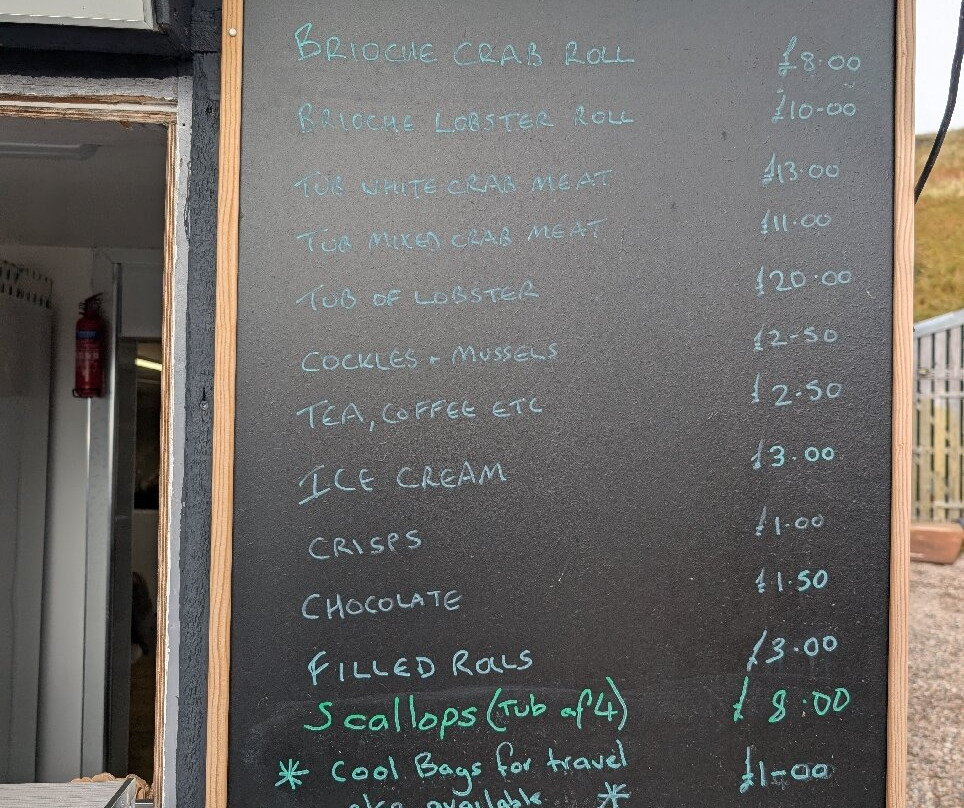 BRIOCHE CRAB ROLL £8.00
BRIOCHE LOBSTER ROLL £10-00
TUB WHITE CRAB MEAT £13.00
TUB MIXED CRAB MEAT £11.00
TUB OF LOBSTER £20.00
COCKLES + MUSSELS £2-50
TEA, COFFEE ETC £2.50
ICE CREAM £3.00
CRISPS £1.00
CHOCOLATE £1.50
FILLED ROLLS £3.00
Scallops (TUB of 4) £8:00
* Cool Bags for travel £1-00
also available *